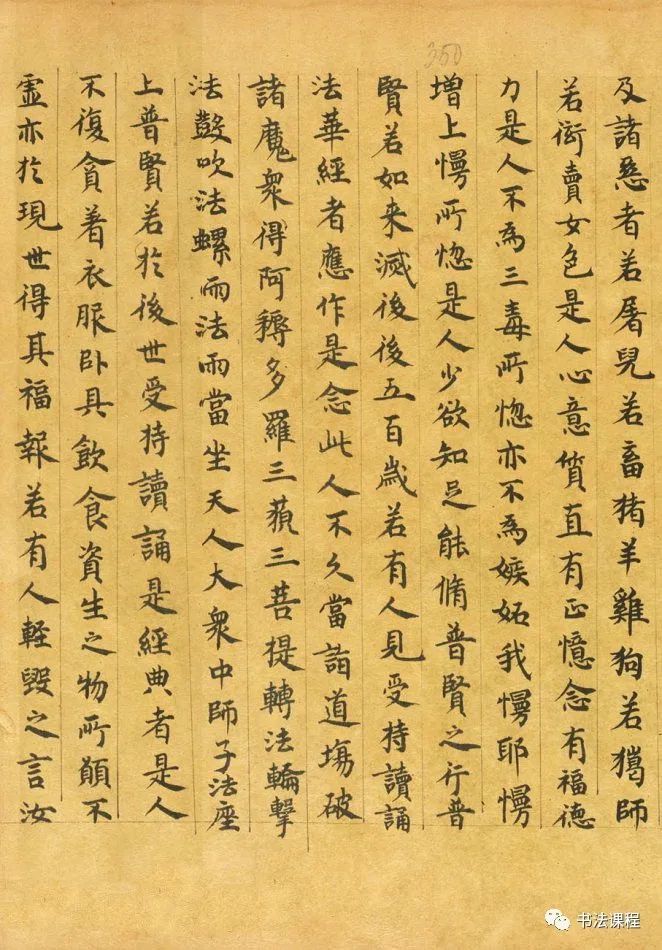 350
及諸惡者若屠兒若畜猪羊雞狗若獦師
若衒賣女色是人心意質直有正憶念有福德
力是人不為三毒所惱亦不為嫉妬我慢耶慢
增上慢所惱是人少欲知足能脩普賢之行普
賢若如来滅後後五百歲若有人見受持讀誦
法華經者應作是念此人不久當詣道場破
諸魔衆得阿耨多羅三藐三菩提轉法輪擊
法鼓吹法螺雨法雨當坐天人大衆中師子法座
上普賢若於後世受持讀誦是經典者是人
不復貪着衣服卧具飲食資生之物所願不
虛亦於現世得其福報若有人輕毀之言汝
书法课程